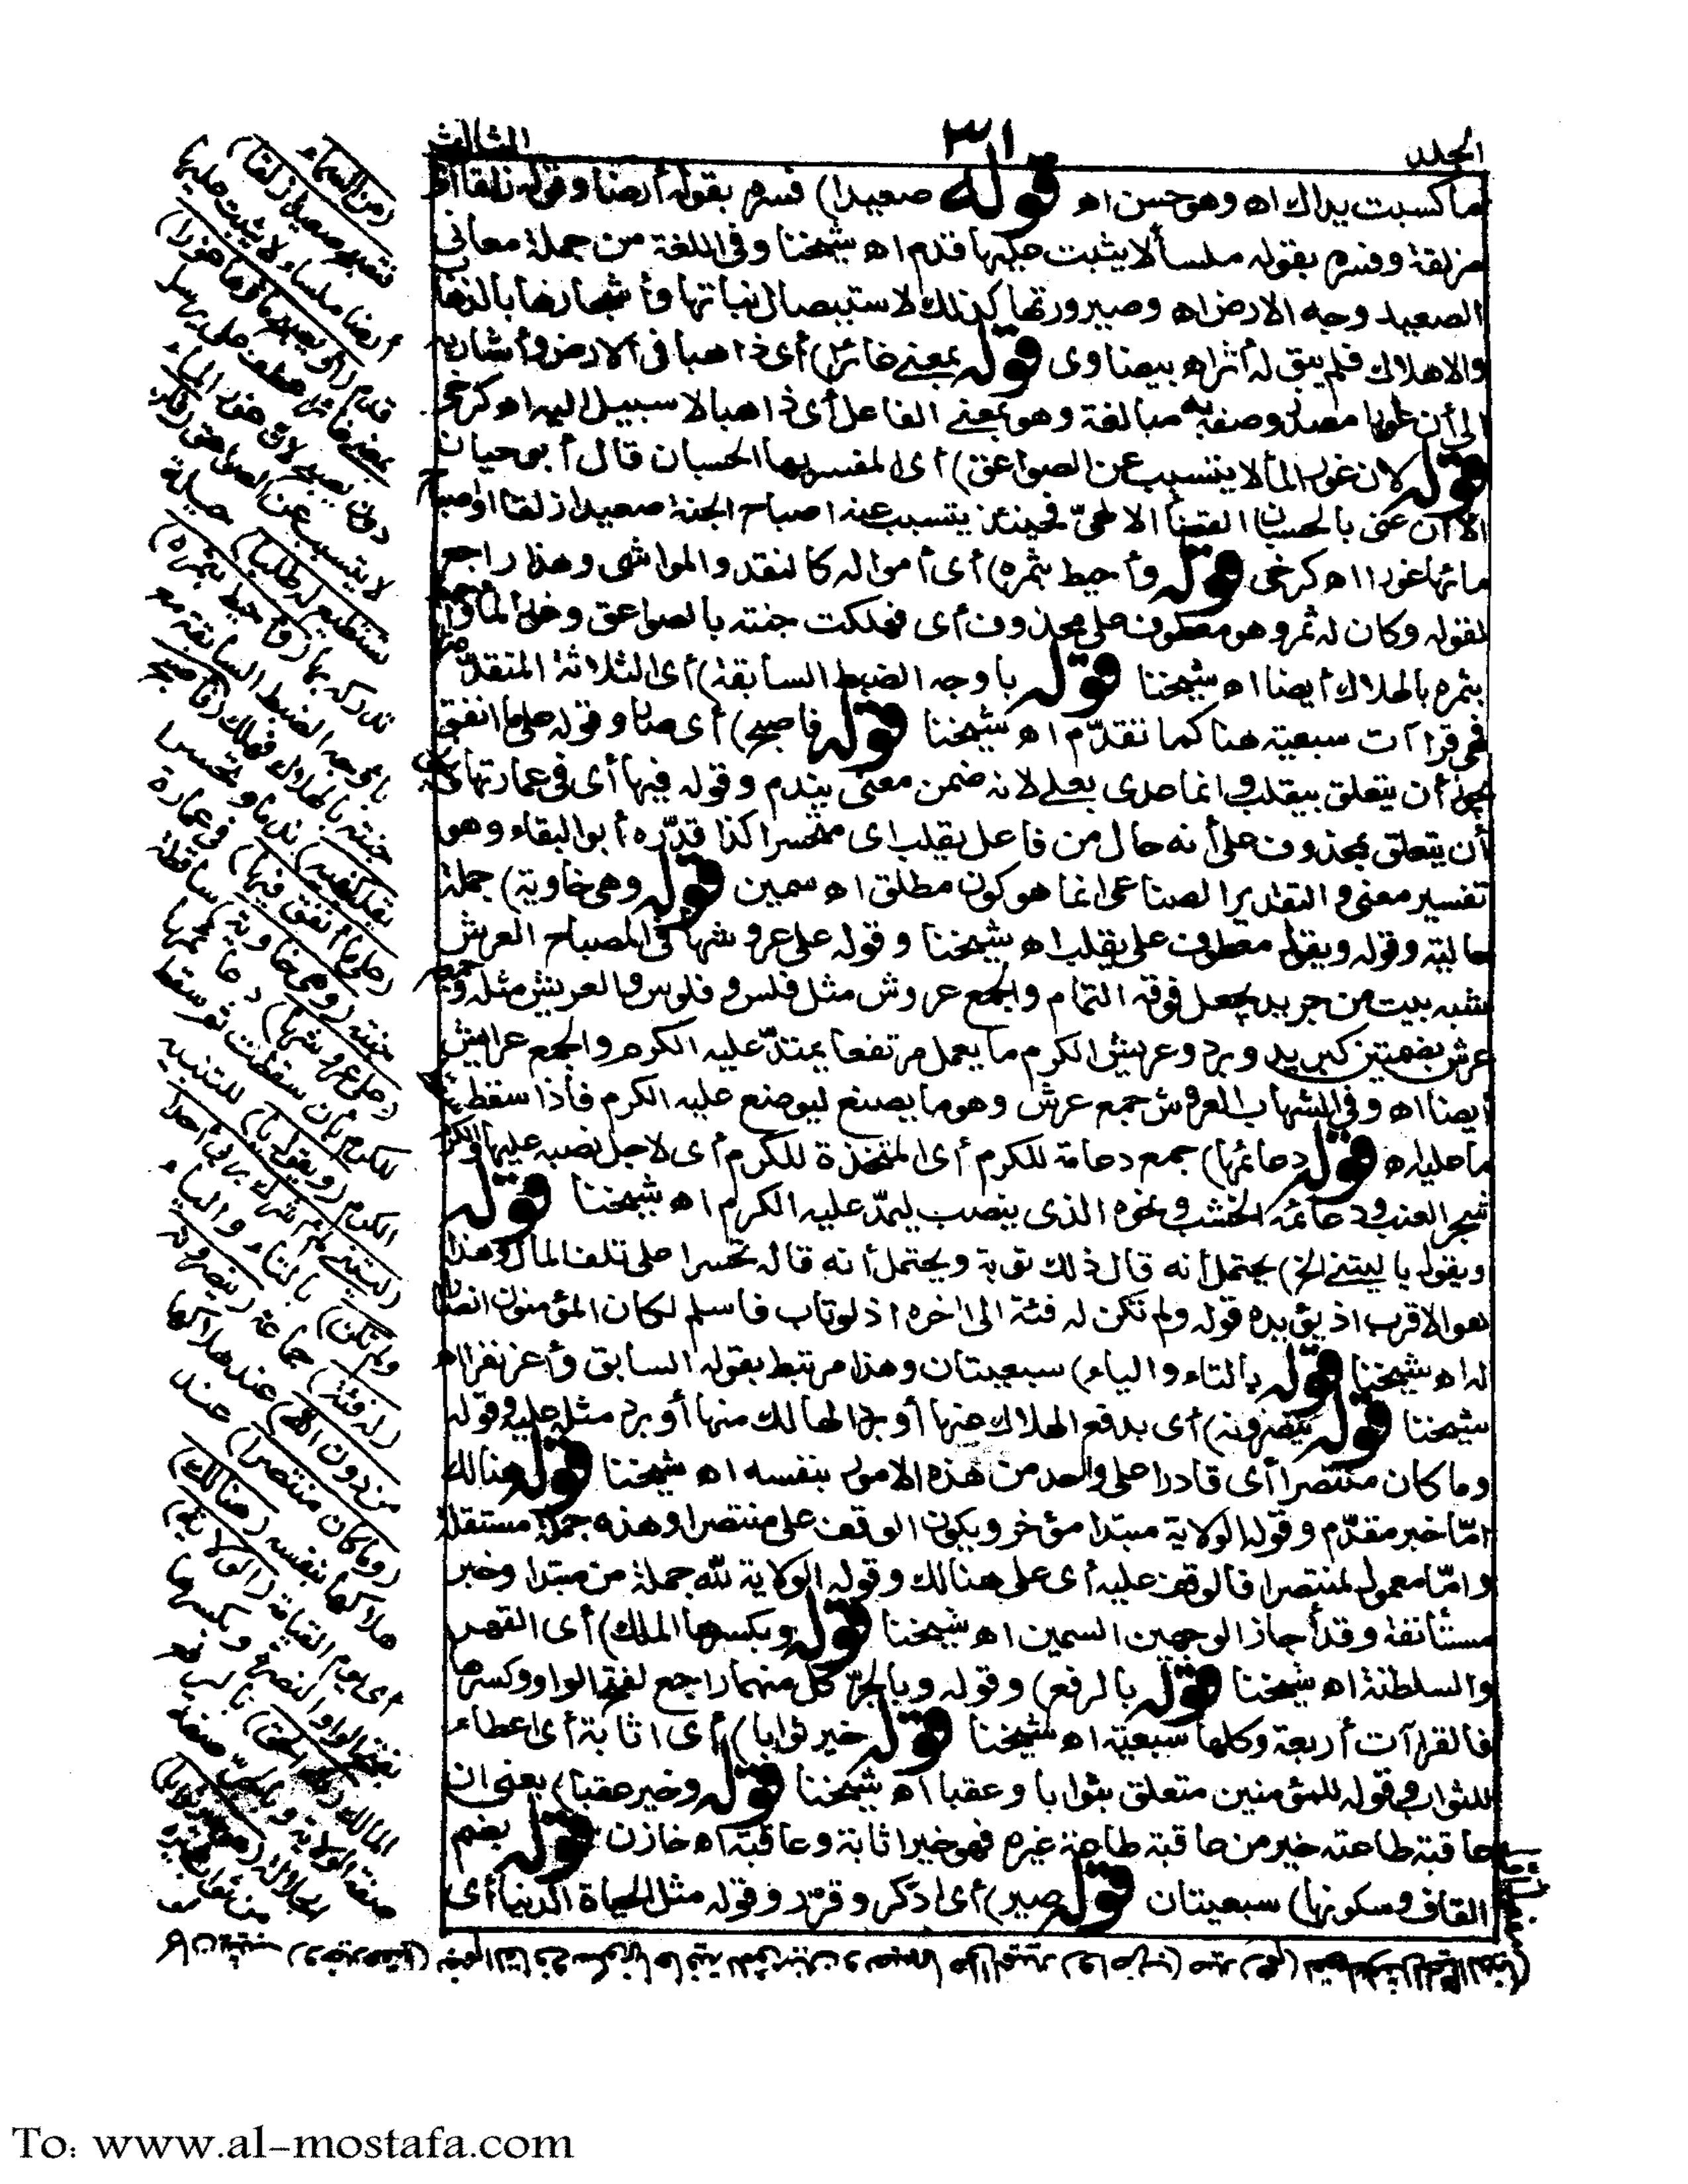 المجلد
٣١
الثالث
ما كسبت يداك اه وهو حسن اه قوله صعيدا) فسره بقوله أرضا وقوله زلقا أى
مزلقة وفسره بقوله ملسأ لا يثبت عليها قدم اه شيخنا وفى اللغة من جملة معانى
الصعيد وجه الارض اه وصيرورتها كذلك لاستيصال نباتها وأشجارها بالذهاب
والاهلاك فلم يبق له أثر اه بيضاوى قوله بمعنى غائرا) أى ذاهبا فى الارض وأشار به
الى أن غورا مصدر وصف به مبالغة وهو بمعنى الفاعل أى ذاهبا لا سبيل اليه اه كرخى
قوله لان غور الماء لا يتسبب عن الصواعق) أى المفسر بها الحسبان قال أبو حيان
الا ان عنى بالحسبان القضأ الالهىّ فحينئذ يتسبب عنه اصباح الجنة صعيدا زلقا او اصباح
مائها غورا اه كرخى قوله وأحيط بثمره) أى أمواله كالنقد والمواشى وهذا راجع
لقوله وكان له ثمر وهو معطوف على محذوف أى فهلكت جنته بالصواعق وغور الماء وأحيط
بثمره بالهلاك أيضا اه شيخنا قوله باوجه الضبط السابقة) أى الثلاثة المتقدمة
فهى قراآت سبعية هنا كما تقدّم اه شيخنا قوله فاصبح) أى صار وقوله على ما انفق
يجوز أن يتعلق بيقلب وانما عدى بعلى لانه ضمن معنى يندم وقوله فيها أى فى عمارتها ويجوز
أن يتعلق بمحذوف على أنه حال من فاعل يقلب اى متحسرا كذا قدّره أبو البقاء وهو
تفسير معنى والتقدير الصناعى انما هو كون مطلق اه سمين قوله وهى خاوية) جملة
حالية وقوله ويقول معطوف على يقلب اه شيخنا وقوله على عروشها فى المصباح العرش
شبه بيت من جريد يجعل فوقه الثمام والجمع عروش مثل فلس وفلوس والعريش مثله وجمعه
عرش بضمتين كبريد وبرد وعريش الكرم ما يعمل مرتفعا يمتدّ عليه الكرم والجمع عرايش
أيضا اه وفى الشهاب العروش جمع عرش وهو ما يصنع ليوضع عليه الكرم فاذا سقط سقط
ما عليه اه قوله دعائمها) جمع دعامة للكرم أى المتخذة للكرم أى لاجل نصبه عليها والكرم
شجر العنب ودعائمه الخشب ونحوه الذى ينصب ليمدّ عليه الكرم اه شيخنا قوله
ويقول يا ليتنى الخ) يحتمل أنه قال ذلك توبة ويحتمل أنه قاله تحسرا على تلف المال وهذا
هو الاقرب اذ يؤيده قوله ولم تكن له فئة الى اخره اذ لو تاب فاسلم لكان المؤمنون انصارا
له اه شيخنا قوله بالتاء والياء) سبعيتان وهذا مرتبط بقوله السابق وأعز نفرا اه
شيخنا قوله ينصرونه) أى بدفع الهلاك عنها أو برد الهالك منها أو برد مثله عليه وقوله
وما كان منتصرا أى قادرا على واحد من هذه الامور بنفسه اه شيخنا قوله هنالك
امّا خبر مقدّم وقوله الولاية مبتدا مؤخر ويكون الوقف على منتصرا وهذه جملة مستقلة
وامّا معمول لمنتصرا فالوقف عليه أى على هنالك وقوله الولاية لله جملة من مبتدا وخبر
مستأنفة وقد أجاز الوجهين السمين اه شيخنا قوله وبكسرها الملك) أى القهر
والسلطنة اه شيخنا قوله بالرفع) وقوله وبالجرّ كل منهما راجع لفتح الواو وكسرها
فالقراآت أربعة وكلها سبعية اه شيخنا قوله خير ثوابا) أى اثابة أى اعطاء
للثواب وقوله للمؤمنين متعلق بثوابا وعقبا اه شيخنا قوله وخير عقبا) يعنى ان
عاقبة طاعته خير من عاقبة طاعة غيره فهو خير اثابة وعاقبة اه خازن قوله بضم
القاف وسكونها) سبعيتان قوله صير) أى اذكر وقرّر وقوله مثل الحياة الدنيا أى
(من السماء
فتصبح صعيدا زلقا)
أرضا ملساء لا يثبت عليها
قدم (أو يصبح ماؤها غورا)
بمعنى غائرا عطف على يرسل
دون تصبح لان غور الماء
لا يتسبب عن الصواعق (فلن
تستطيع له طلبا) حيلة
تدركه بها (وأحيط بثمره)
باوجه الضبط السابقة مع
جنته بالهلاك فهلك (فأصبح
يقلب كفيه) ندما وتحسرا
(على ما أنفق فيها) فى عمارة
جنته (وهى خاوية) ساقطة
(على عروشها) دعائمها
للكرم بأن سقطت ثم سقط
الكرم (ويقول يا) للتنبيه
(ليتنى لم أشرك بربى أحدا
ولم تكن) بالتاء والياء
(له فئة) جماعة (ينصرونه
من دون الله) عند هلاكها
(وما كان منتصرا) عند
هلاكها بنفسه (هنالك)
أى يوم القيامة (الولاية)
بفتح الواو النصرة وبكسرها
الملك (لله الحق) بالرفع
صفة الولاية وبالجرّ صفة
الجلالة (هو خير ثوابا)
To: www.al-mostafa.com